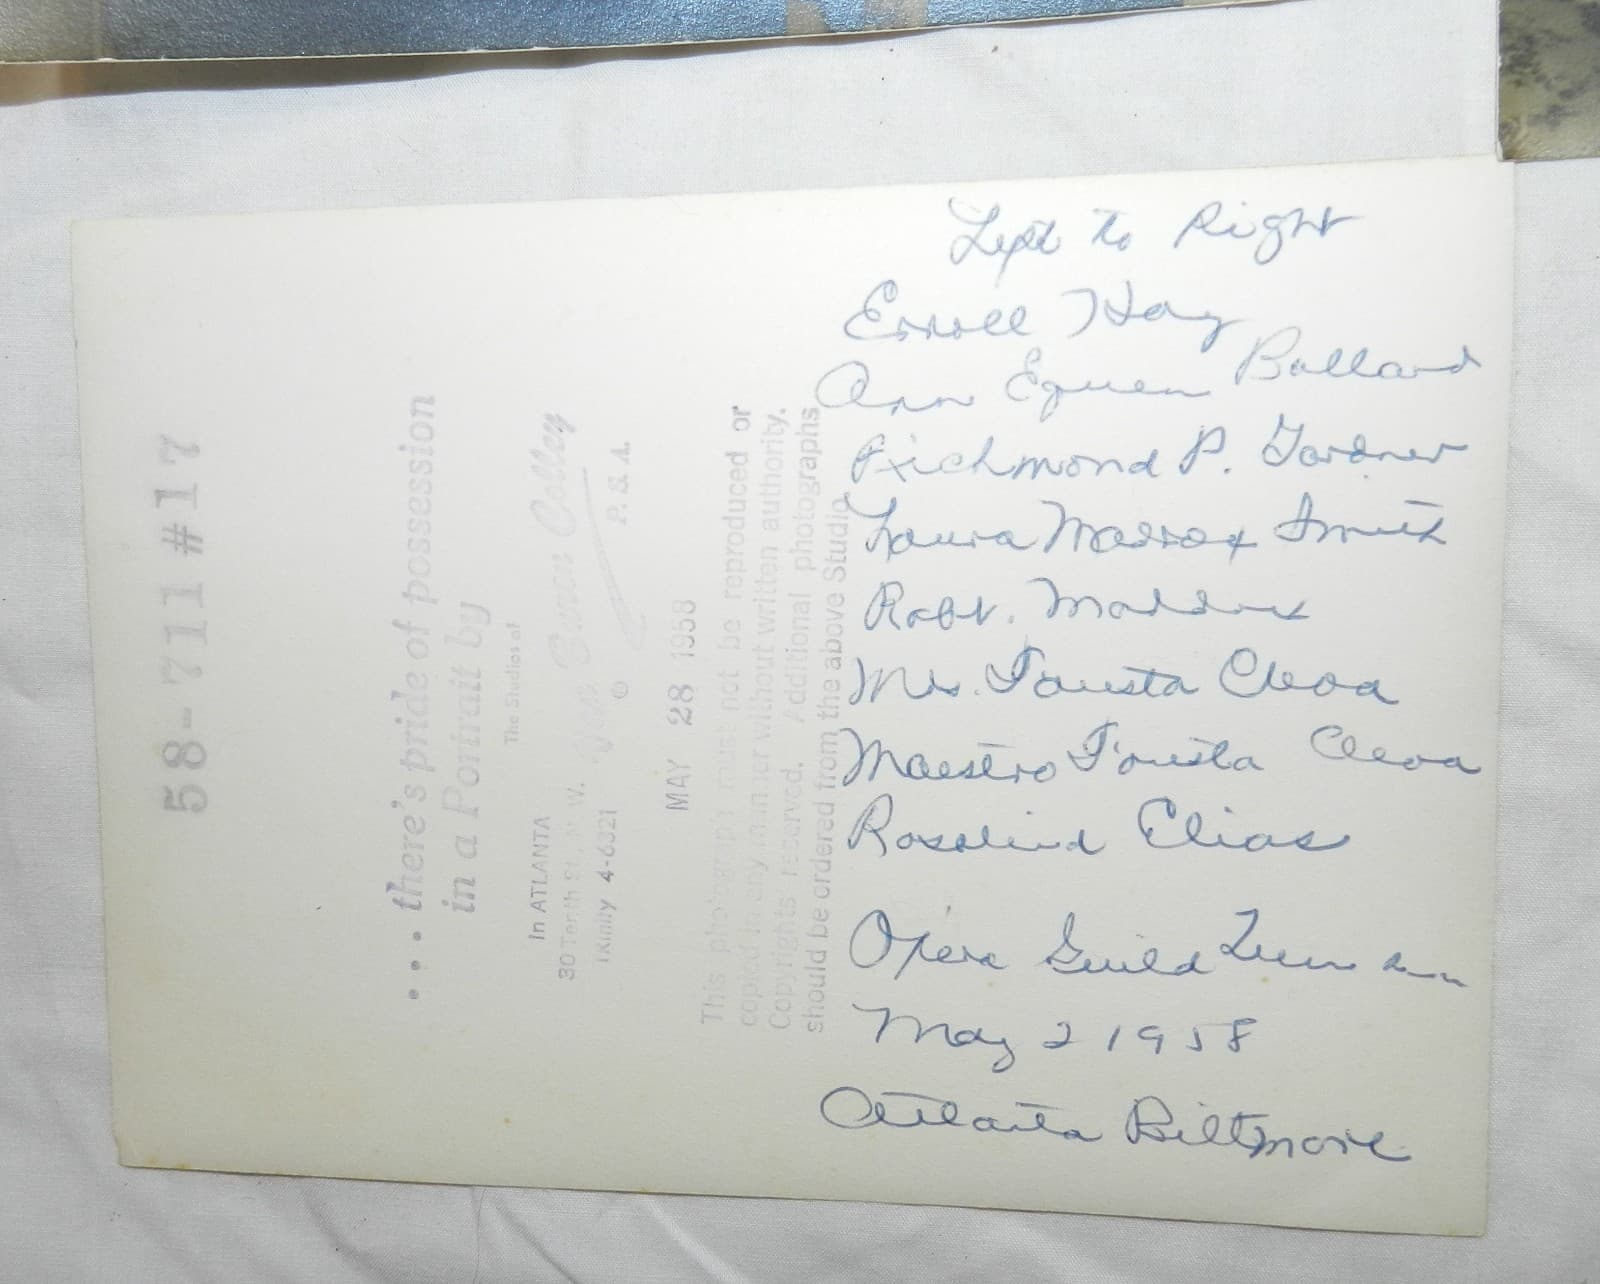 Left to Right
Erroll Hay
Ann Equen Ballard
Richmond P. Gardner
Laura Maddox Smith
Robt. Maddox
Mrs. Fausta Cleva
Maestro Fausta Cleva
Rosalind Elias
Opera Guild
May 2 1958
Atlanta Biltmore
58-711 #17
....there's pride of possession
in a Portrait by
The Studios of
Colley
P. S A.
©
In ATLANTA
30 Tenth St., N. W.
TRinity 4-6321
MAY 28 1958
This photograph must not be reproduced or
copied in any manner without written authority.
Copyrights reserved. Additional photographs
should be ordered from the above Studio